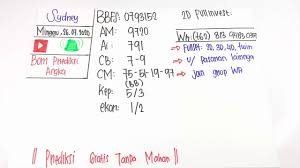 Sydney
Minggu, 26.07.2020
Bom Prediksi
Angka
BBFS: 0793152
AM: 9720
Ai: 791
CB: 7-9
CM: 75-51-19-97
Kep: 5/3
ekor: 1/2
2D Full Invest:
Full BB, 30, 40, twin
u/ Pasaran lainnya
Join group WA
|| Prediksi Gratis Tanpa Mahar ||